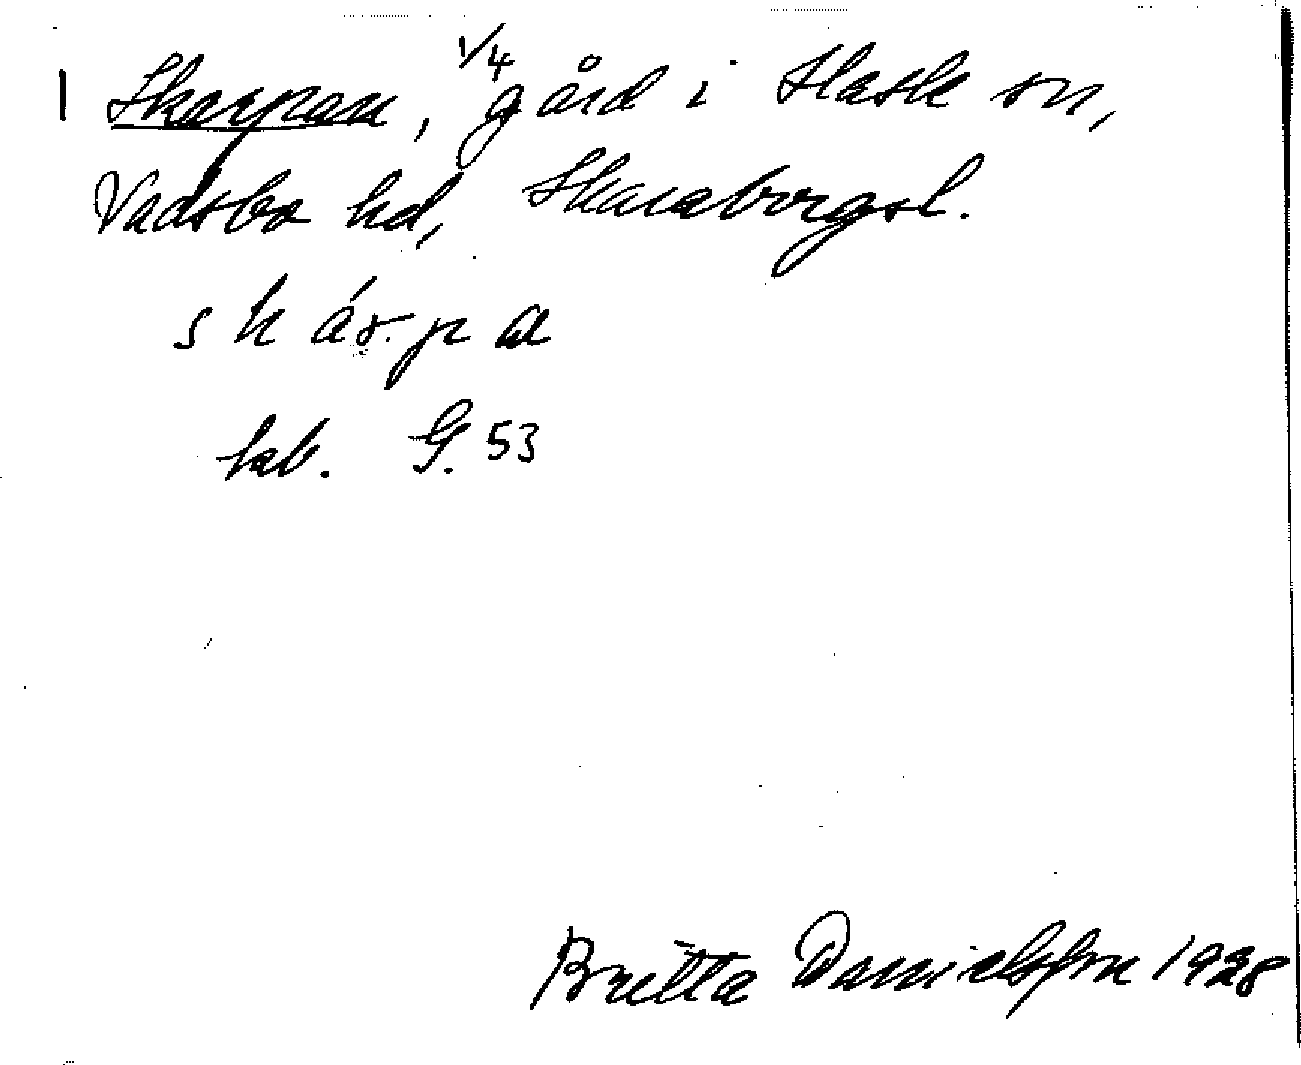 Skarpan, 1/4 gård i Hassle sn,
Vadsbo hd, Skaraborgsl.
s k á r. p a
kab. G. 53
Britta Danielsson 1928